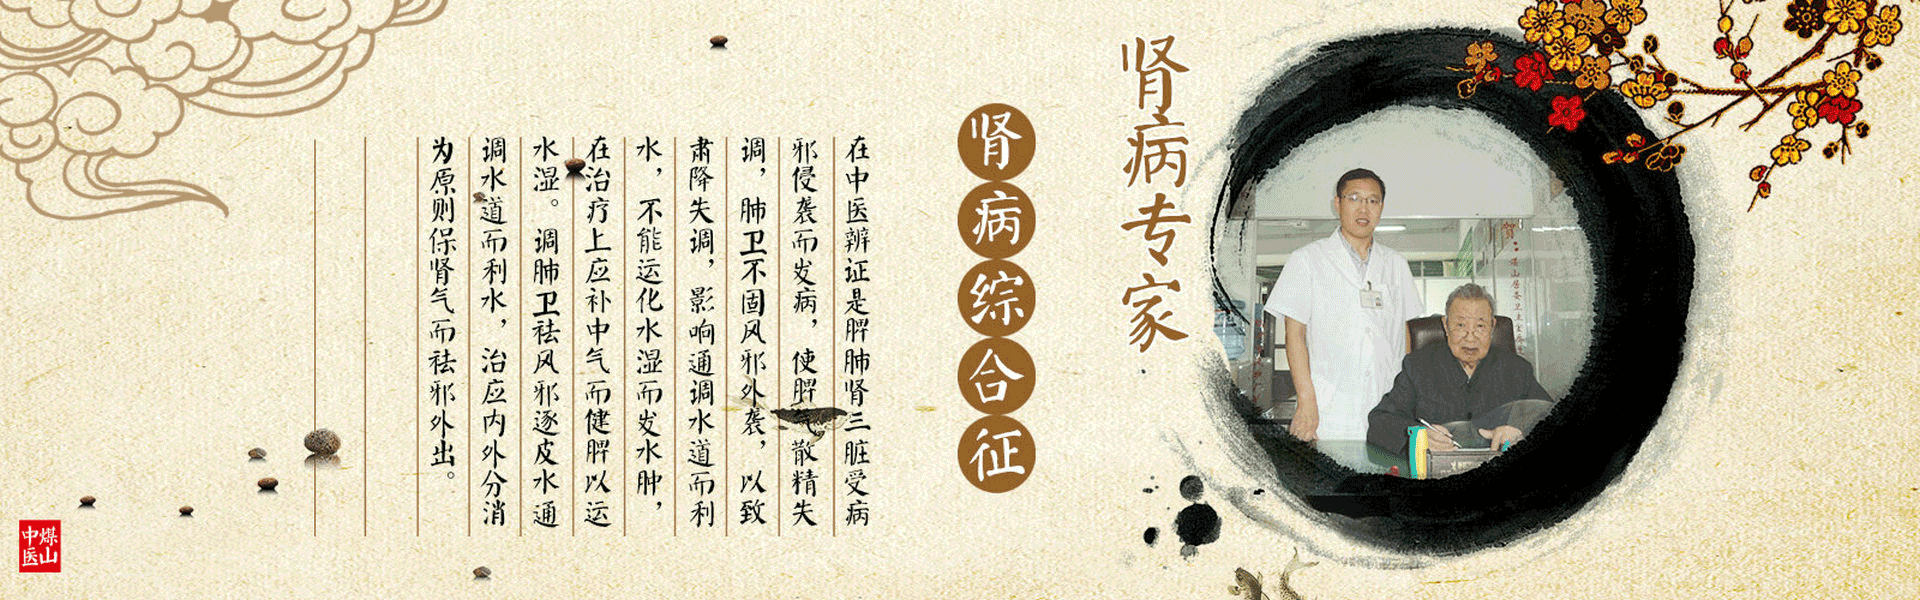 贺：
肾病专家
肾病综合征
在中医辨证是脾肺肾三脏受病
邪侵袭而发病，使脾气散精失
调，肺卫不固风邪外袭，以致
肃降失调，影响通调水道而利
水，不能运化水湿而发水肿，
在治疗上应补中气而健脾以运
水湿。调肺卫祛风邪逐皮水通
调水道而利水，治应内外分消
为原则保肾气而祛邪外出。
煤山
中医